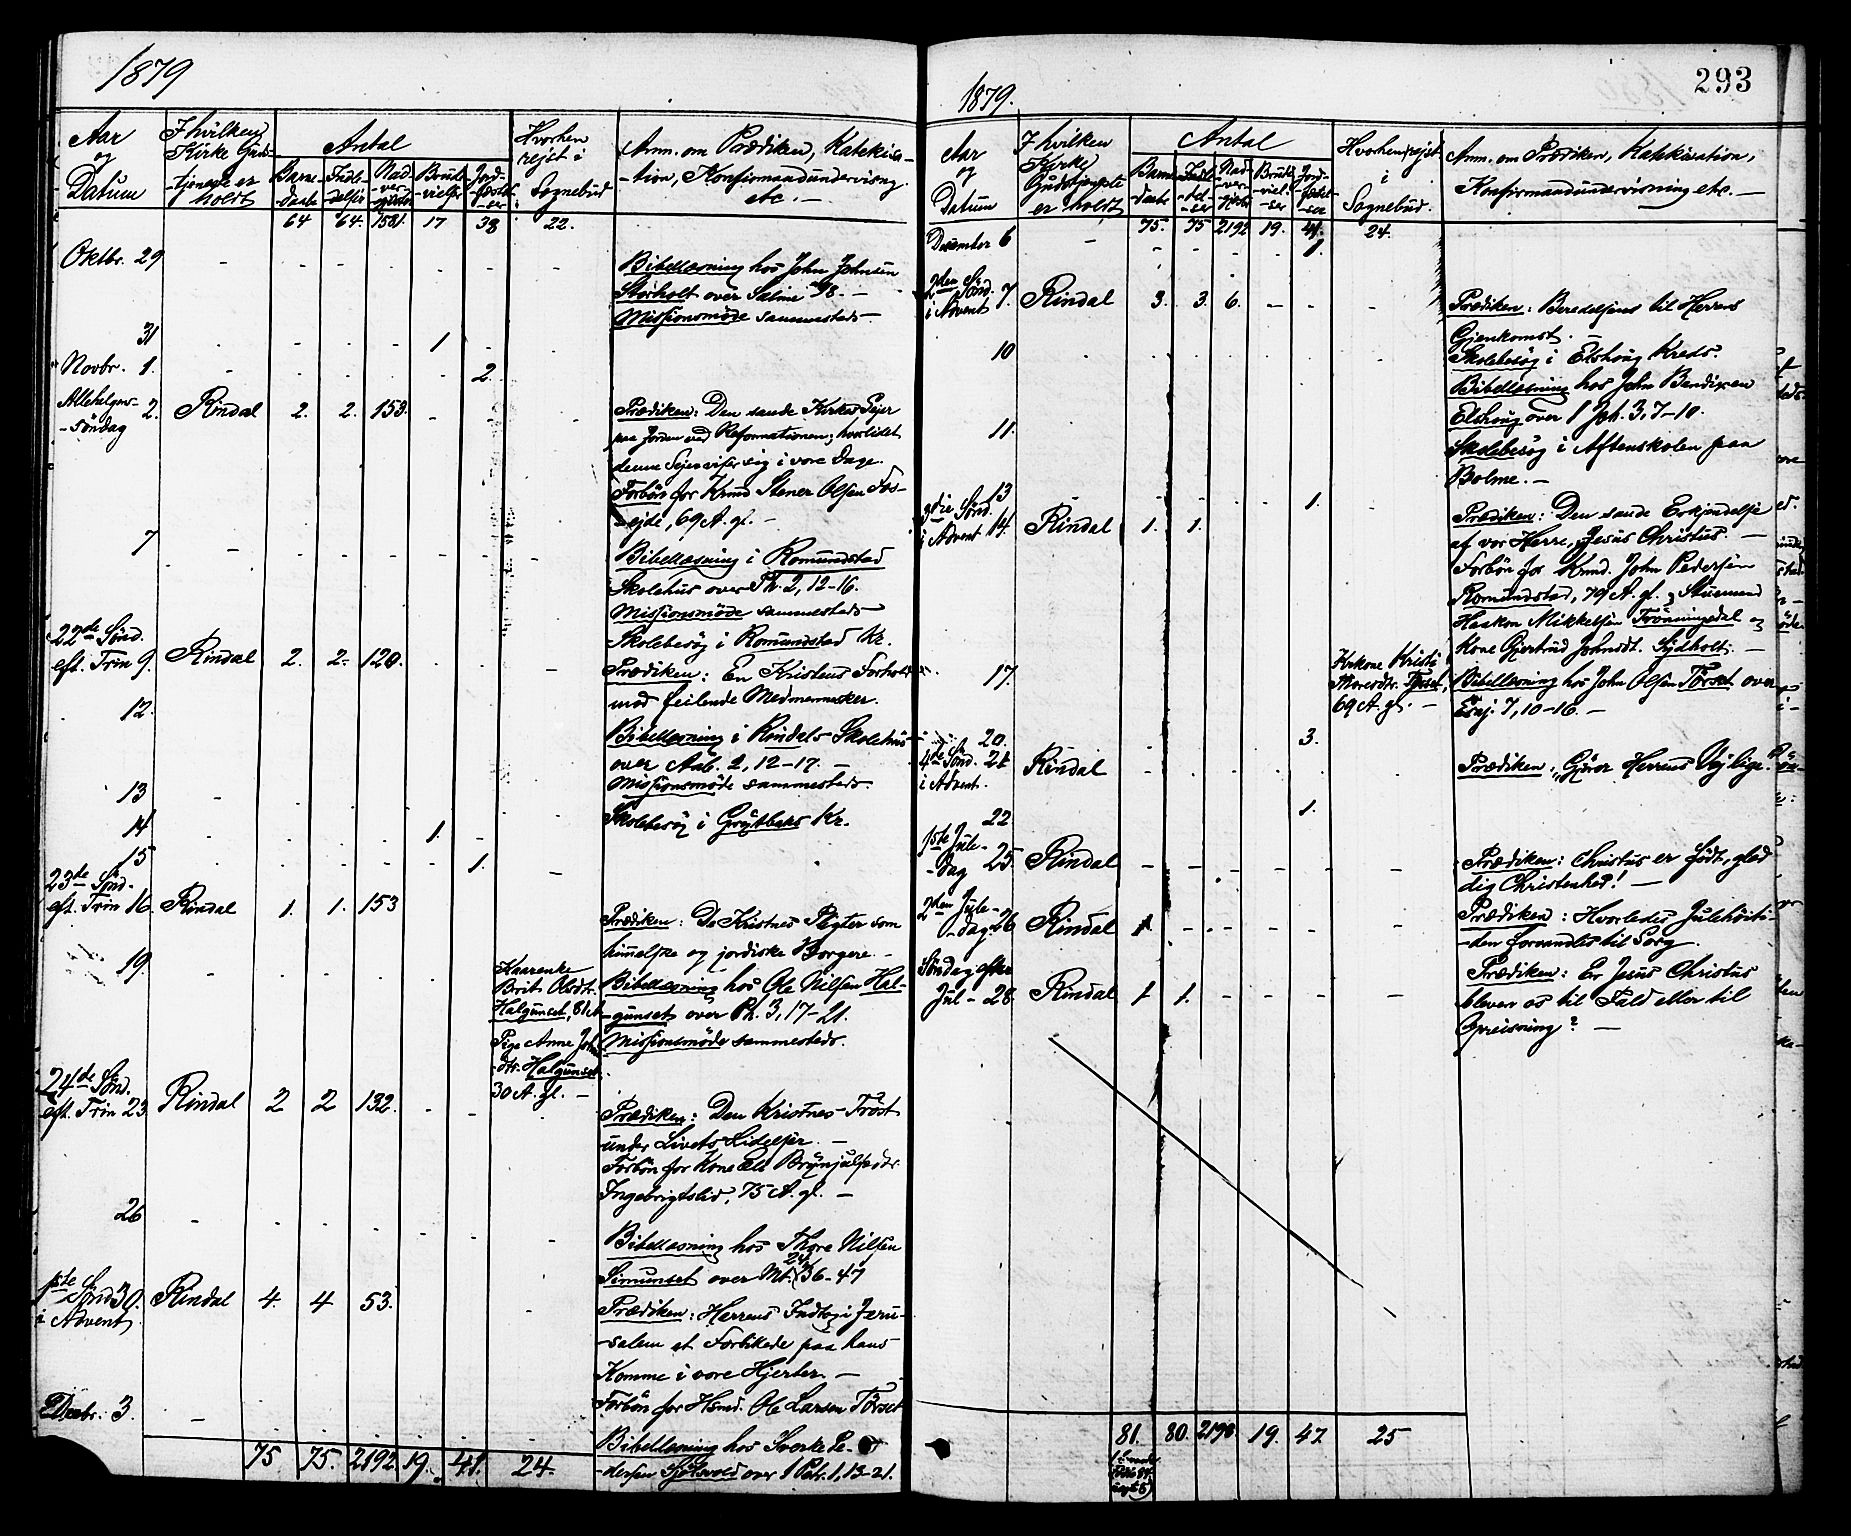 1879
Aar og Datum
I hvilken Kirke Guds-tjeneste er holdt
Antal
Barne-daab
Indle-delser
Nad-ver-gjester
Brude-vielser
Jord-fæstel-ser
Hvorhen rejst i Sognebud
Anm. om Prædiken, Katekisa-
-tion, Konfirmandundervisng.
etc. —
64 64. 1581. 17 38 22.
Oktbr. 29 - - - - - - -
Bibellæsning hos John Johnsen
Storholt over Salme 98. —
Missionsmöde sammesteds —
31 - - - - 1 - -
Novbr. 1. - - - - - 2.
Allehelgens-
-söndag 2. Rindal 2. 2. 153. - - -
Prædiken: Den sande Kirkes Sejer
paa Jorden ved Reformationen; hvorledes
denne Sejer viser sig i vore Dage.
Forbön for Krmd. Stener Olsen Fos-
-ejde, 69 A. gl. —
7 - - - - - - -
Bibellæsning i Romundstad
Skolehus over Ph. 2, 12-16.
Missionsmöde sammesteds
Skolebesög i Romundstad Kr.
22de Sönd.
eft. Trin 9. Rindal 2. 2. 120. - - -
Prædiken: En Kristens Forhold
mod feilende Medmennesker.
12.
Bibellæsning i Rindals Skolehus
over Aab. 2, 12-17. —
Missionsmöde sammesteds.
13 -
Skolebesög i Grytbaks Kr.
14 - - - - 1. -
15 - - - - - 1. -
23de Sönd.
eft. Trin 16. Rindal 1. 1. 153
Prædiken: De Kristnes Pligter som
himmelske og jordiske Borgere. —
19. - - - - - -
Kaarenke
Brit Olsdtr.
Halgunset, 81 A.
Pige Anne John
-dtr. Halgunset
30 A. gl. —
Bibellæsning hos Ole Nilsen Hal-
-gunset over Ph. 3, 17-21.
Missionsmöde sammesteds.
24de Sönd.
eft. Trin 23. Rindal 2 2 132. - -
Prædiken: Den Kristnes Tröst
under Livets Lidelser. —
Forbön for Kone Brynjulfsdtr.
Ingebrigtslid, 75 A. gl. —
26 - - - - - - -
Bibellæsning hos Thore Nilsen
Simunset over Mt. 24, 36-47
1ste Sönd 30.
i Advent Rindal 4. 4 53. - - -
Prædiken: Herrens Indtog i Jeru-
-salem et Forbillede paa hans
Komme i vore Hjerter. —
Forbön for Hsmd. Ole Larsen Törset
Decbr. 3. - - - - - - -
Bibellæsning hos Sverke Pe-
-dersen Sjölsvold over 1 Petr. 1, 13-21.
75 75. 2192. 19. 41. 24.
1879.
293
Aar og Datum
I hvilken Kirke Gudstjeneste er holdt
Antal
Barne-daab
Indle-del-ser
Nad-ver-gjester
Brude-viel-ser
Jord-fæstel-ser
Hvorhen rejst i Sognebud.
Anm. om Prædiken, Katekisation,
Konfirmandundervisning etc. —
75. 75 2192 19. 41. 24.
December 6 - - - - - 1.
2den Sönd.
i Advent 7. Rindal 3. 3. 6. - - -
Prædiken: Beredelsens til Herrens
Gjenkomst. —
10 - - - - - -
Skolebesög i Elshaug Kreds.
Bibellæsning hos John Bendixen
Elshaug over 1 Joh. 3, 7-10.
11.
Skolebesög i Aftenskolen paa
Bolme. —
13 - - - - 1. -
3die Sönd.
i Advent 14. Rindal 1. 1.
Prædiken: Den sande Erkjendelse
af vor Herre, Jesus Christus —
Forbön for Krmd. John Pedersen
Romundstad, 79 A. gl. og Stuemand
Haakon Mikkelsen Tröningsdal og
Kone Gjertrud Johnsdt. Sydholt. —
17.
Krkone Kristi
Thoresdtr. Törset,
69 A. gl. —
Bibellæsning hos John Olsen Törset over
Esaj. 7, 10-16. —
20. - - - - 3.
4de Sönd. 21
i Advent. Rindal - - - - - -
Prædiken: „Gjörer Herrens Vej lige."
22 1.
1ste Jule-
-dag 25. Rindal - - - - - -
Prædiken: Christus er födt, glæd
dig Christenhed! —
2den Jule-
-dag 26 Rindal 1. - - - - - -
Prædiken: Hvorledes Julehöiti-
-den forvandles til Sorg.
Söndag efter
Jul - 28. Rindal 1 1. - - - -
Prædiken: Er Jesus Christus
bleven os til Fald eller til
Opreisning? —
81. 80. 2198. 19. 47. 25